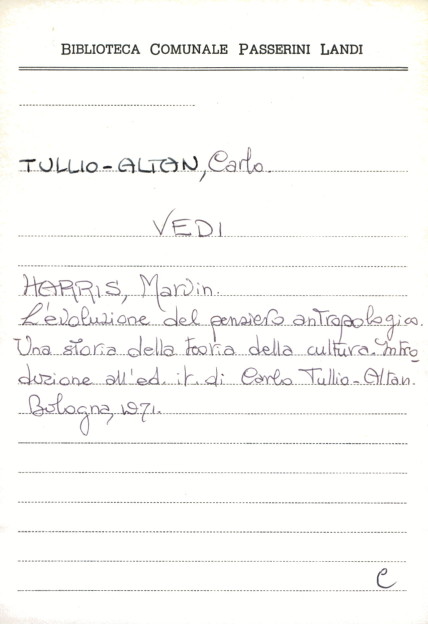 BIBLIOTECA COMUNALE PASSERINI LANDI
TULLIO-ALTAN, Carlo.
VEDI
HARRIS, Marvin.
L'evoluzione del pensiero antropologico.
Una storia della teoria della cultura. Intro
duzione all'ed. it. di Carlo Tullio-Altan.
Bologna, 1971.
C